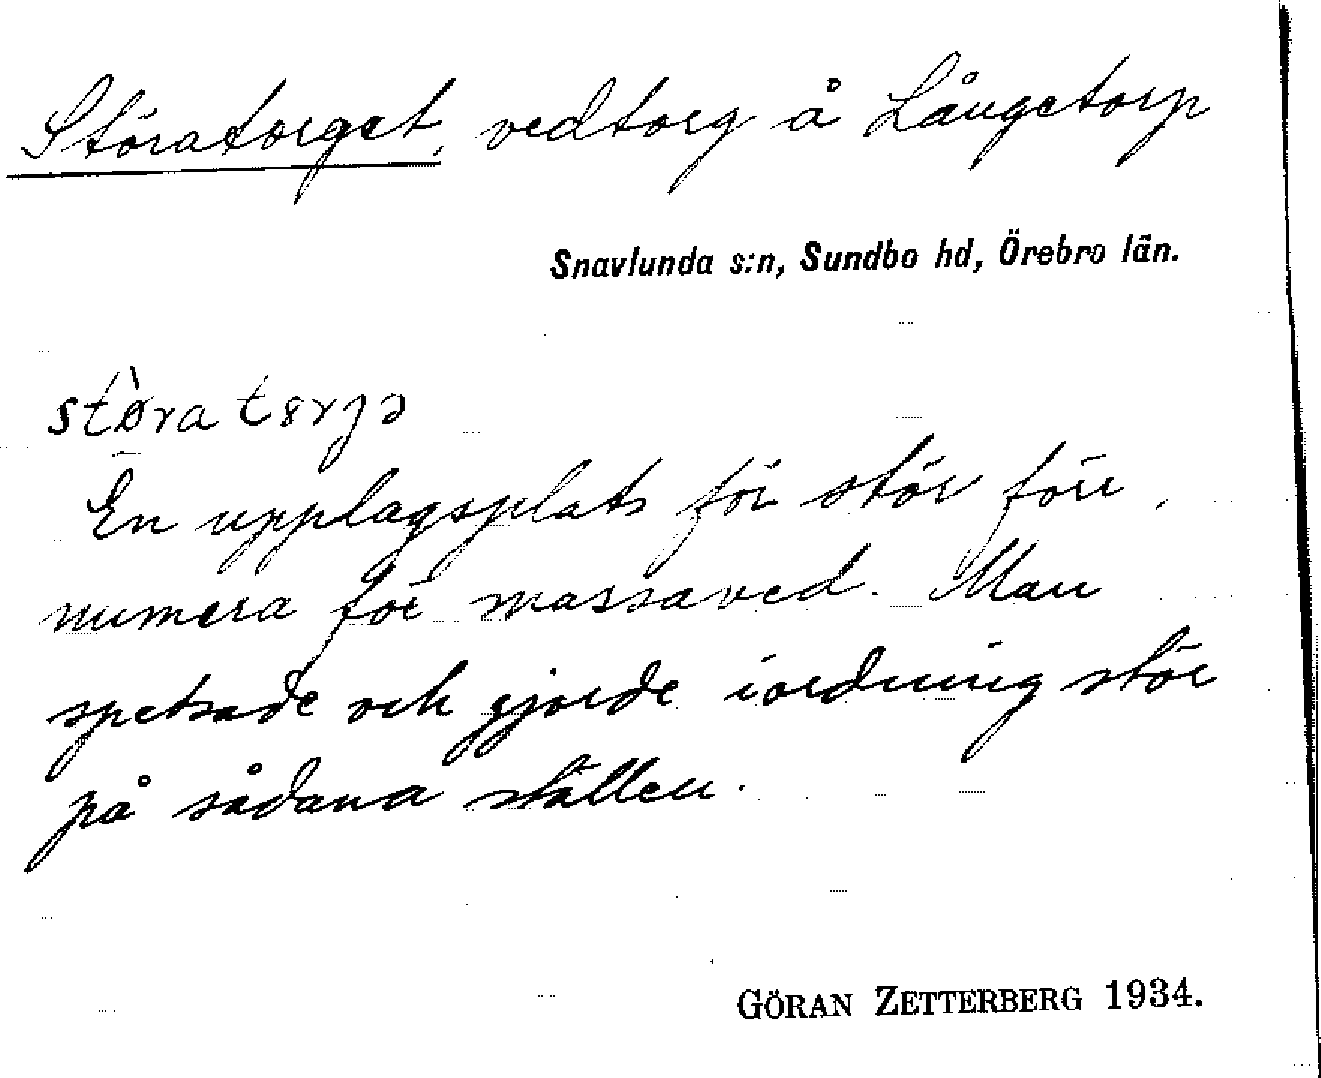 Störatorget, vedtorg å Långetorp
Snavlunda s:n, Sundbo hd, Örebro län.
En upplagsplats för stör förr,
numera för massaved. Man
spetsade och gjorde iordning stör
på sådana ställen.
GÖRAN ZETTERBERG 1934.